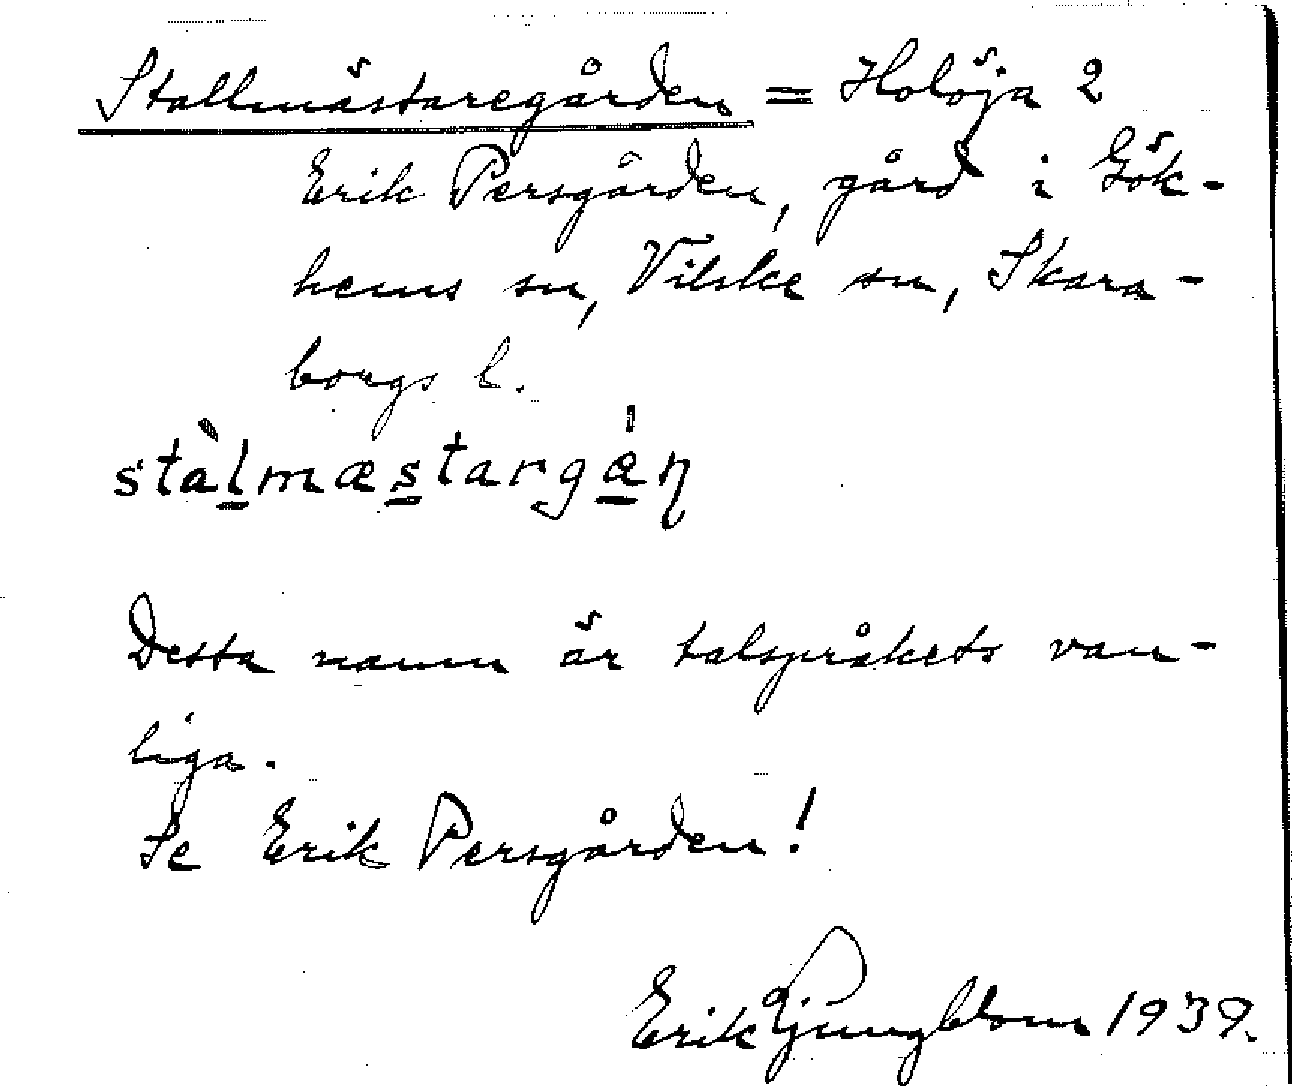 Stallmästaregården = Holöja 2
Erik Persgården, gård i Gök-
hems sn, Vilske sn, Skara-
borgs l.
stàlmæstargáη
Detta namn är talspråkets van-
liga.
Se Erik Persgården!
Erik Ljungblom 1939.